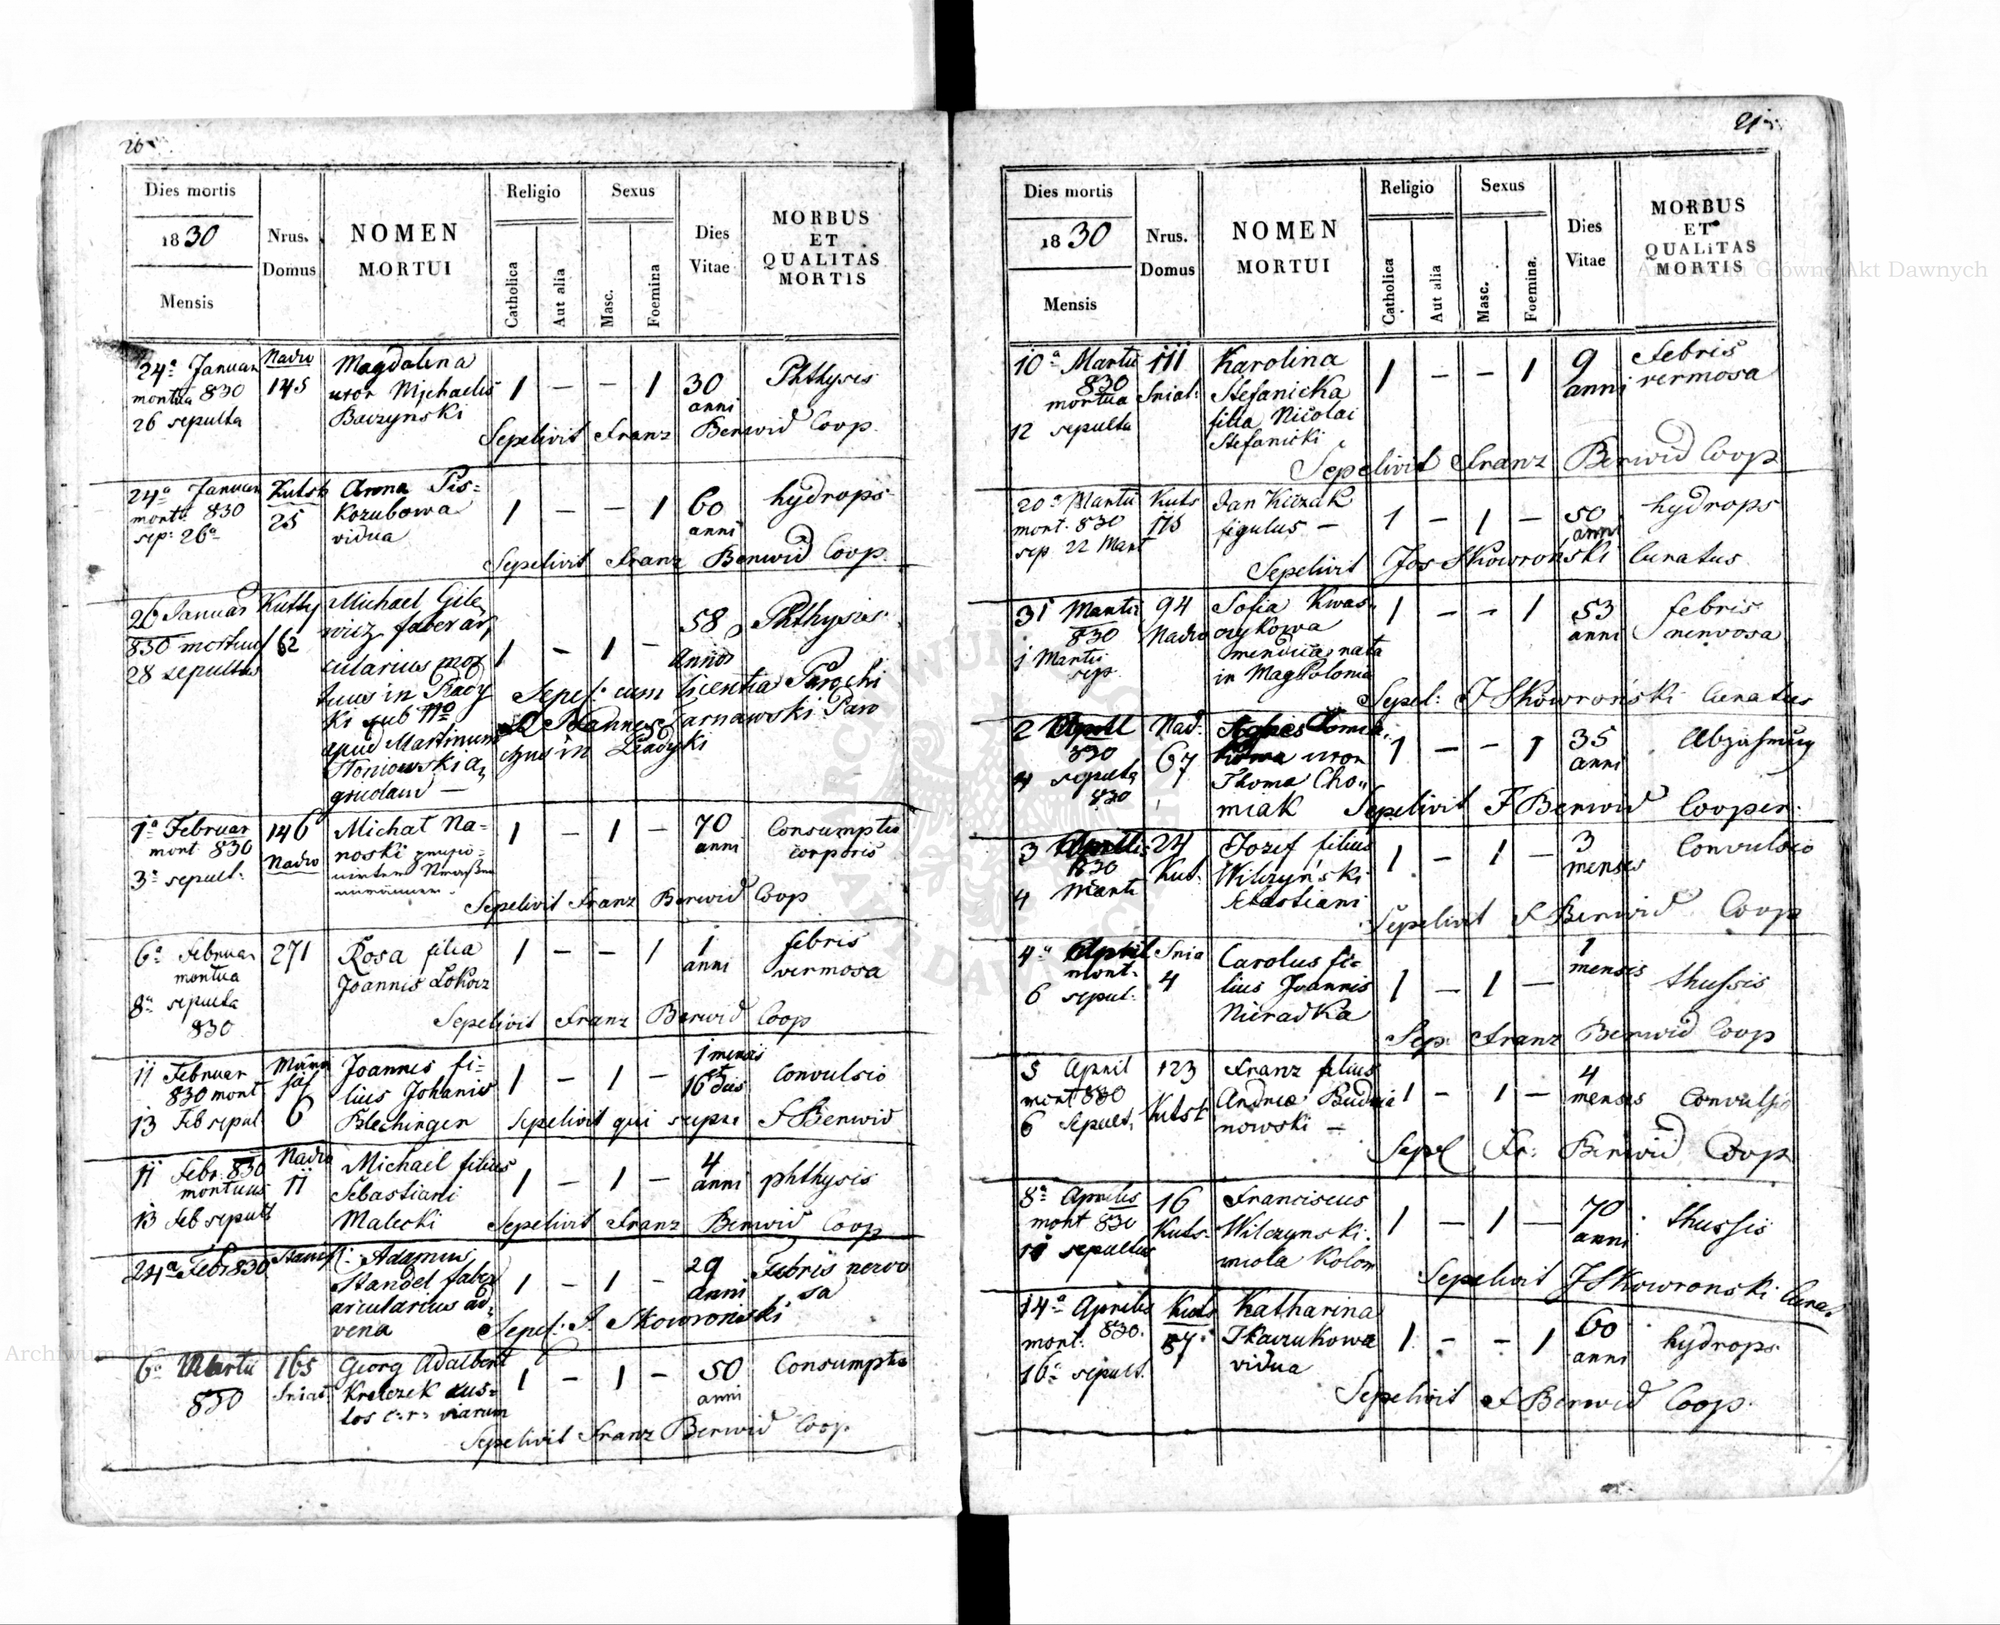 Dies mortis
Religio
Sexus
1830
Nrus.
Domus
NOMEN
MORTUI
Dies
Vitae
MORBUS
ET
QUALITAS
MORTIS
Mensis
Catholica
Aut alia
Masc.
Foemina
24a Januar
mortua 830
26 sepulta
Nadw
145
Magdalena
uxor Michaelis
Buczynski
1 — — 1
30
anni
Phthysis
Sepelivit Franz Berwid Coop.
24a Januar
mortu 830
sep: 26a
Kutsk
25
Anna Pis=
Kozubowa
vidua
1 — — 1
60
anni
hydrops
Sepelivit Franz Berwid Coop.
26 Januar
830 mortuus
28 sepultus
Kutty
62
Michael Gile
wicz faber ar
cularius mor
tuus in
Ki sub No
apud Martinum
1 — 1 —
58
Annos
Phthysis
Sepel: cum licentia Parochi
Joannes Tarnawski Paro
chus in
1a Februar
mont 830
3a sepult:
146
Nadw
Michał Na=
noski
1 — 1 —
70
anni
Consumptio
corporis
Sepelivit Franz Berwid Coop
6a Februar
mortua
8a sepulta
830
271
Rosa filia
Joannis
1 — — 1
1
anni
febris
vermosa
Sepelivit Franz Berwid Coop
11 Februar
830 mont
13 Feb sepul
6
Joannes fi=
lius Johanis
Blechinger
1 — 1 —
1 mensis
et
16 dies
Convulsio
Sepelivit qui supra F Berwid
11 Febr. 830
mortuus
13 Feb sepult
Nadw
11
Michael filius
Sebastiani
Malecki
1 — 1 —
4
anni
phthysis
Sepelivit Franz Berwid Coop
24a Febr 830
Adamus
Standel faber
arcularius ad
vena
1 — 1 —
29
anni
Febris nervo
sa
Sepel: J. Skowroński
6a Martii
830
165
Sniat
Georg Adalbert
Kreczek cus=
tos c: r: viarum
1 — 1 —
50
anni
Consumptio
Sepelivit Franz Berwid Coop
21
Dies mortis
Religio
Sexus
1830
Nrus.
Domus
NOMEN
MORTUI
Dies
Vitae
MORBUS
ET
QUALITAS
MORTIS
Mensis
Catholica
Aut alia
Masc.
Foemina.
10a Martii
830
mortua
12 sepulta
111
Sniat:
Karolina
Stefanicka
filia Nicolai
Stefanicki
1 — — 1
9
anni
febris
vermosa
Sepelivit Franz Berwid Coop
20a Martii
mont. 830
sep 22 Mart
Kuts
115
Jan Kiczak
figulus —
1 — 1 —
50
anni
hydrops
Sepelivit Jos Skowroński Curatus
31 Martii
830
1 Martii
sep.
94
Nadw
Sofia Kwas=
czykowa
mendica nata
in Mag Polonia
1 — — 1
53
anni
febris
nervosa
Sepel: J Skowroński Curatus
2 April
830
4 sepulta
830
Nad:
67
uxor
Thoma Cho=
miak
1 — — 1
35
anni
Sepelivit F Berwid Cooper:
3 Aprili
830
4 Marti
24
Kut:
Jozef filius
Wilczyński
Sebastiani
1 — 1 —
3
menses
Convulsio
Sepelivit F Berwid Coop
4a April
mont.
6 sepul:
Snia
4
Carolus fi=
lius Joannis
Nieradka
1 — 1 —
1
mensis
thussis
Sep: Franz Berwid Coop
5 April
mont 830
6 Sepult,
123
Kutsk
Franz filius
Andrea Budzia
nowski —
1 — 1 —
4
menses
Convulsio
Sepel Fr: Berwid Coop
8a Aprilis
mont 830
sepultus
16
Kuts.
Franciscus
Wilczynski
1 — 1 —
70
anni
thussis
Sepelivit J Skowronski Cura.
14a Aprilis
mont. 830.
16a sepult.
Kuts
57
Katharina
Tkaczukowa
vidua
1 — — 1
60
anni
hydrops
Sepelivit F Berwid Coop.
Archiwum Główne Akt Dawnych